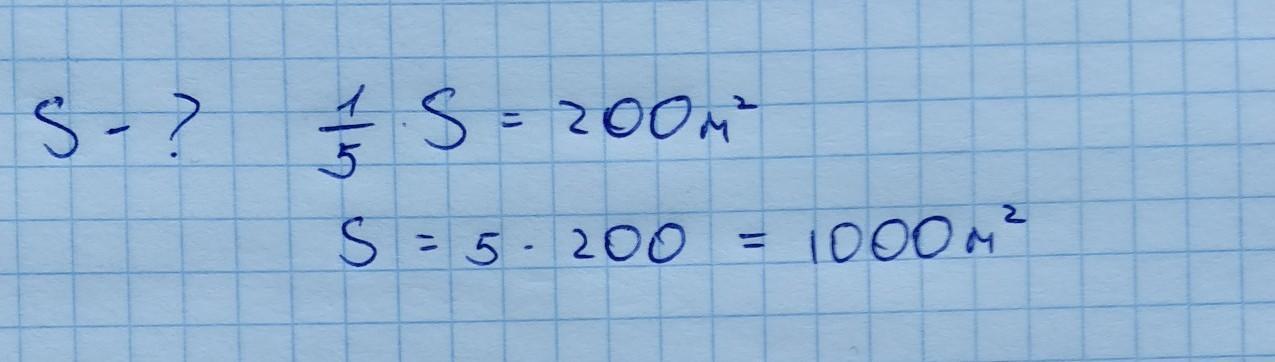 S - ? 1/5 · S = 200 м²
S = 5 · 200 = 1000 м²